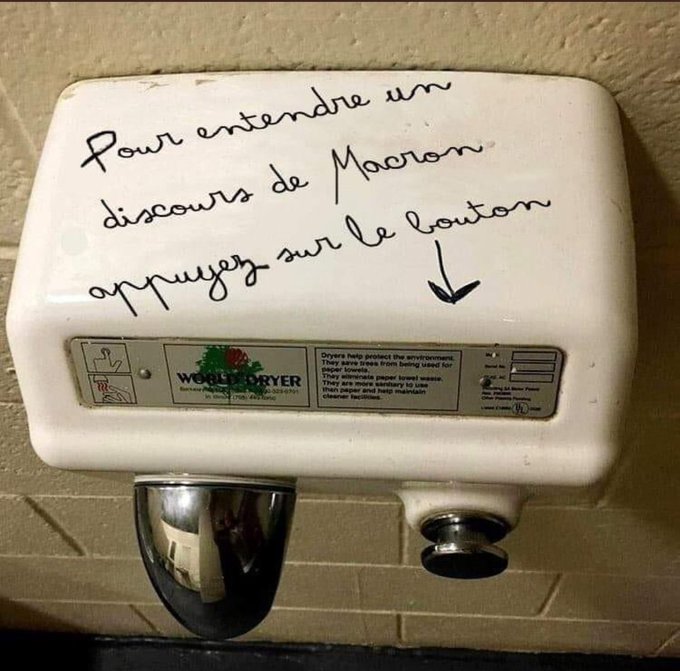 Pour entendre un
discours de Macron
appuyez sur le bouton
WORLD DRYER
Dryers help protect the environment.
They save trees from being used for
paper towels.
They eliminate paper towel waste.
They are more sanitary to use
than paper and help maintain
cleaner facilities.